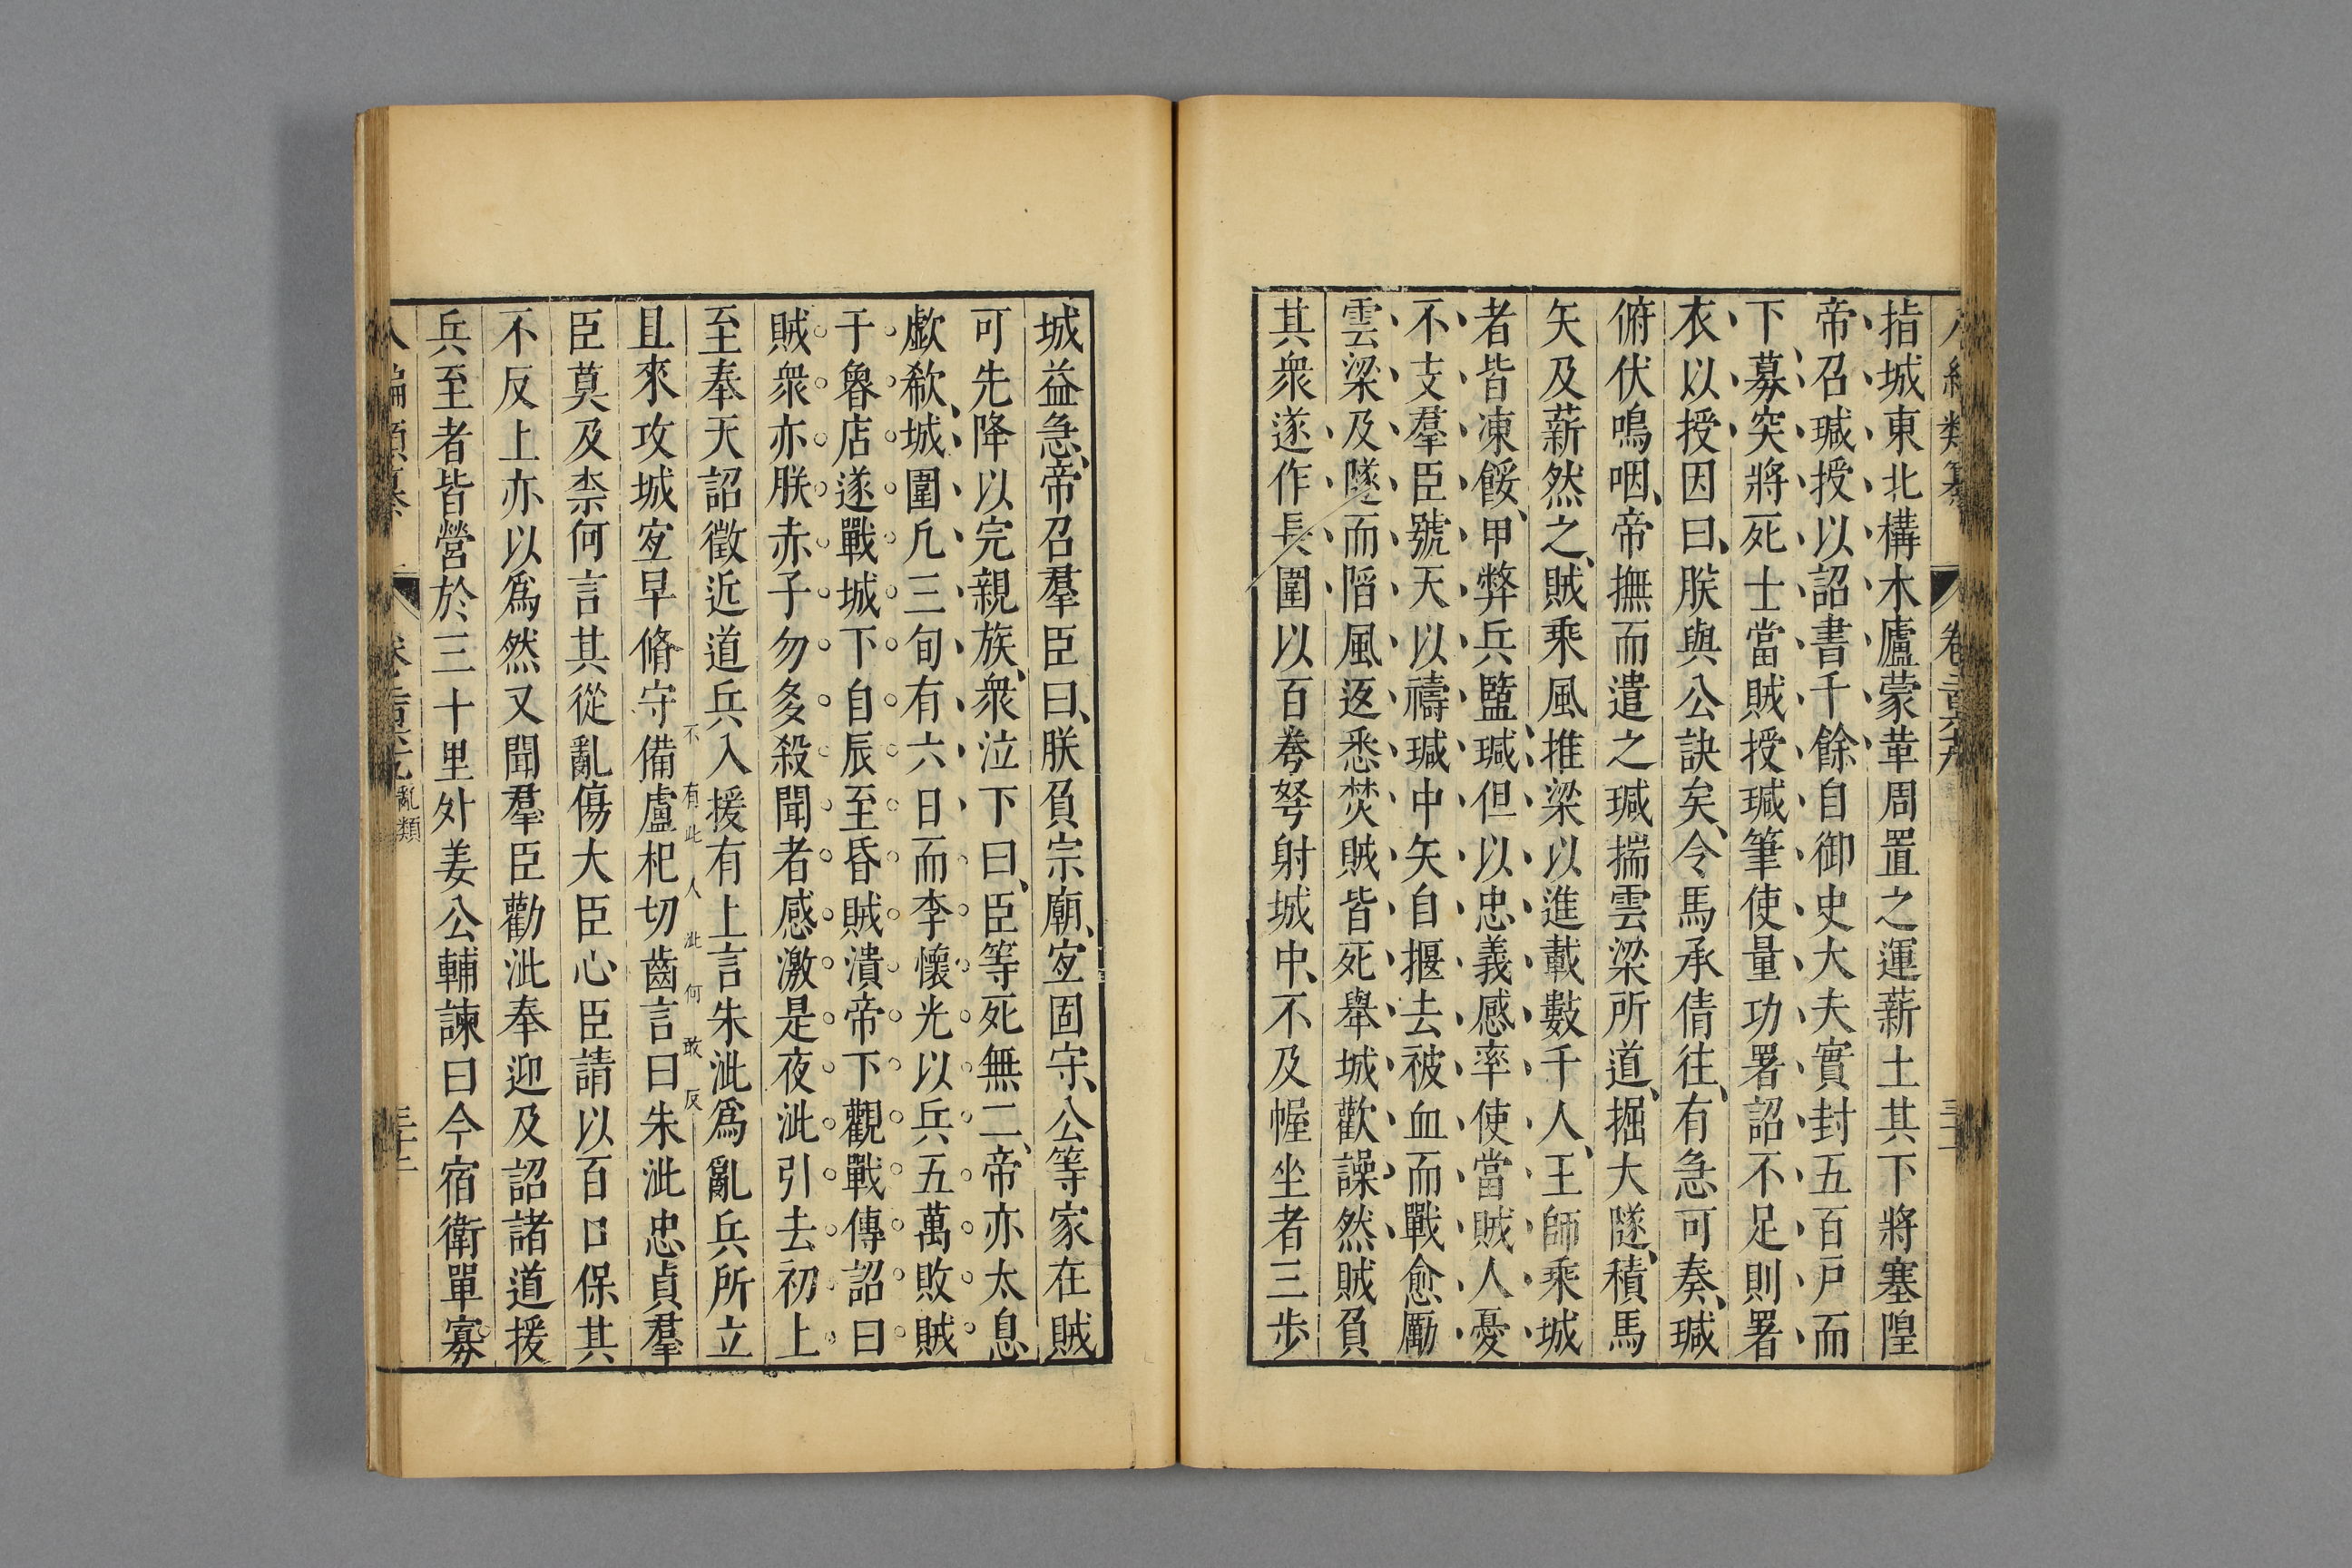 指城東北構木廬蒙革周置之運薪土其下將塞隍
帝召瑊授以詔書千餘自御史大夫實封五百戸而
下募突將死士當賊授瑊筆使量功署詔不足則署
衣以授因曰朕與公訣矣令馬承倩往有急可奏瑊
俯伏鳴咽帝撫而遣之瑊揣雲梁所道掘大隧積馬
矢及薪然之賊乘風推梁以進載數千人王師乘城
者皆凍餒甲弊兵盬瑊但以忠義感率使當賊人憂
不支羣臣號天以禱瑊中矢自揠去被血而戰愈厲
雲梁及隧而陷風返悉焚賊皆死舉城歡譟然賊負
其衆遂作長圍以百弮弩射城中不及幄坐者三步
城益急帝召羣臣曰朕負宗廟宐固守公等家在賊
可先降以完親族衆泣下曰臣等死無二帝亦太息
歔欷城圍凡三旬有六日而李懷光以兵五萬敗賊
于魯店遂戰城下自辰至昏賊潰帝下觀戰傳詔曰
賊衆亦朕赤子勿多殺聞者感激是夜泚引去初上
至奉天詔徵近道兵入援有上言朱泚爲亂兵所立
且來攻城宐早脩守備盧杞切齒言曰朱泚忠貞羣
不有此人泚何敢反
臣莫及柰何言其從亂傷大臣心臣請以百口保其
不反上亦以爲然又聞羣臣勸泚奉迎及詔諸道援
兵至者皆營於三十里外姜公輔諫曰今宿衛單寡
亂類